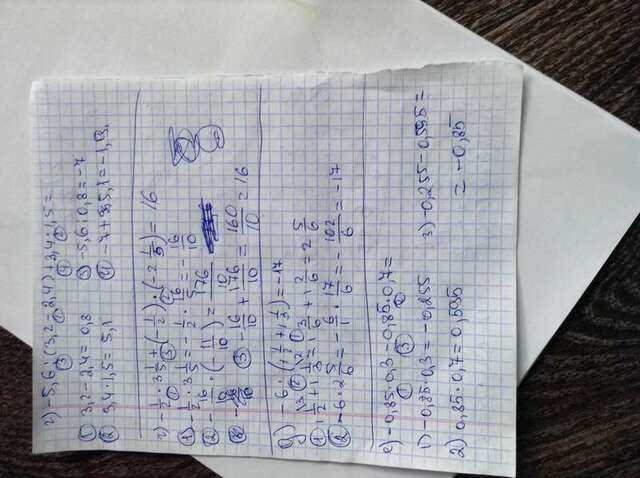 г) -5,6 : (3,2 - 2,4) + 3,4 · 1,5 =
① 3,2 - 2,4 = 0,8 ③ -5,6 : 0,8 = -7
② 3,4 · 1,5 = 5,1 ④ -7 + 5,1 = -1,9.
-1/2 · 3 1/5 + (1/2) : (-2 1/5) = 16
① -1/2 · 3 1/5 = -1/2 · 16/5 = -16/10
② 16 · (-11/10) = 176/10
③ -16/10 + 176/10 = 160/10 = 16
д) -6 · (1 1/2 + 1 1/3) = -17
① 1 1/2 + 1 1/3 = 1 3/6 + 1 2/6 = 2 5/6
② -6 · 2 5/6 = -6/1 · 17/6 = -102/6 = -17
е) -0,85 · 0,3 - 0,85 · 0,7 =
1) -0,85 · 0,3 = -0,255 3) -0,255 - 0,595 =
2) 0,85 · 0,7 = 0,595 = -0,85